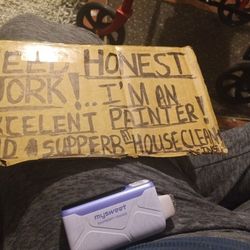 NEED HONEST
WORK!.. I'M AN
EXCELENT PAINTER!
AND A SUPPERB AT HOUSE CLEAN
mysweet